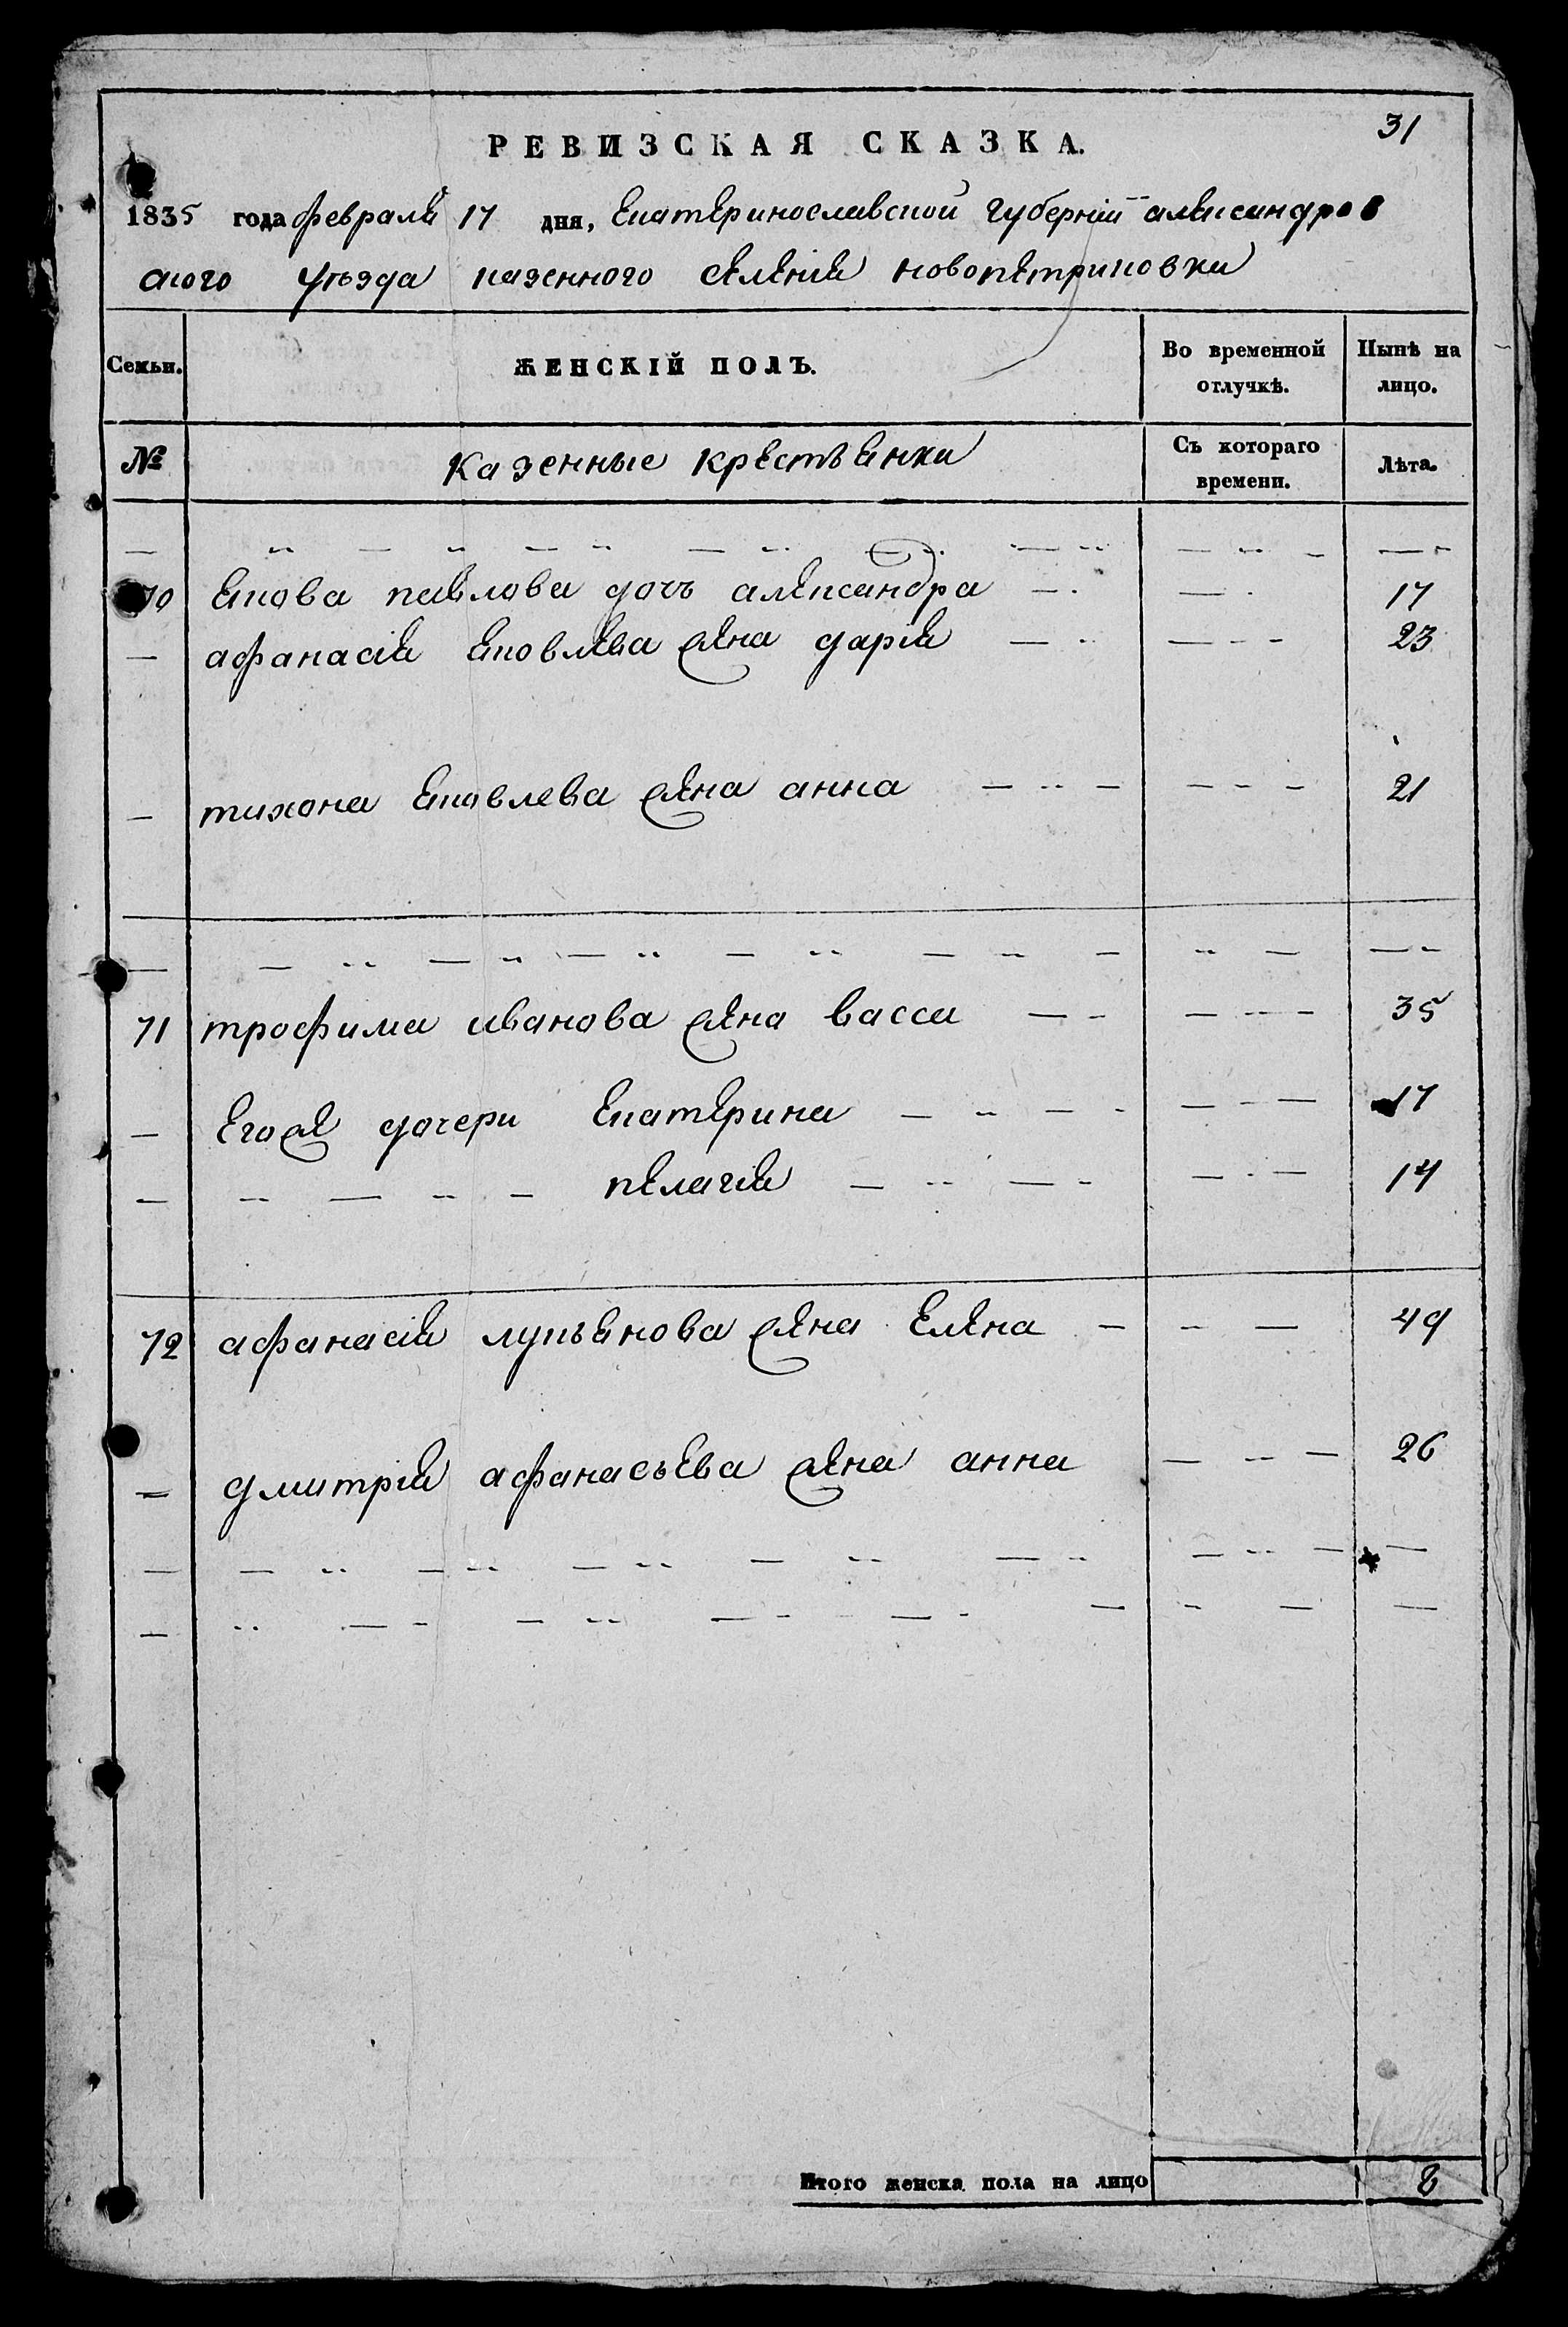 31
РЕВИЗСКАЯ СКАЗКА.
1835 года февраля 17 дня, Екатеринославской губернии александров
ского уъзда казенного селения новопетриковки
Семьи. ЖЕНСКІЙ ПОЛЪ. Во временной отлучкѣ. Нынѣ на лицо.
№ Казенные крестьянки Съ котораго времени. Лѣта.
70 якова павлова дочь александра 17
афанасія яковлева жена дарія 23
тихона яковлева жена анна 21
71 трофима иванова жена васса 35
его же дочери екатерина 17
пелагія 14
72 афанасія лукьянова жена елена 49
дмитрія афанасьева жена анна 26
Итого женска пола на лицо 8